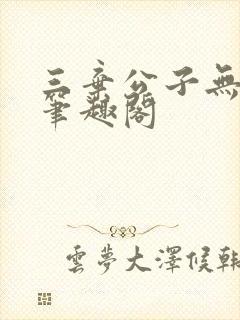 三弃公子無
筆趣閣
雲夢大澤候韓